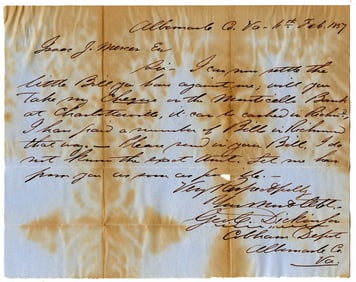 Albemarle Co. Va. 6th Feb. 1857
Isaac J. Mercer Esq
Sir - I can now settle the
little Bill you have against me, will you
take my Cheque on the Monticello Bank
at Charlottesville, it can be cashed in Richmd
I have paid a number of Bills in Richmond
that way - Please send in your Bill, I do
not know the exact amt. Let me hear
from you as soon as possible. -
Very Respectfully
Your Mo Obt.
Geo. C. Dickinson
Cobham Depot
Albemarle Co.
Va.